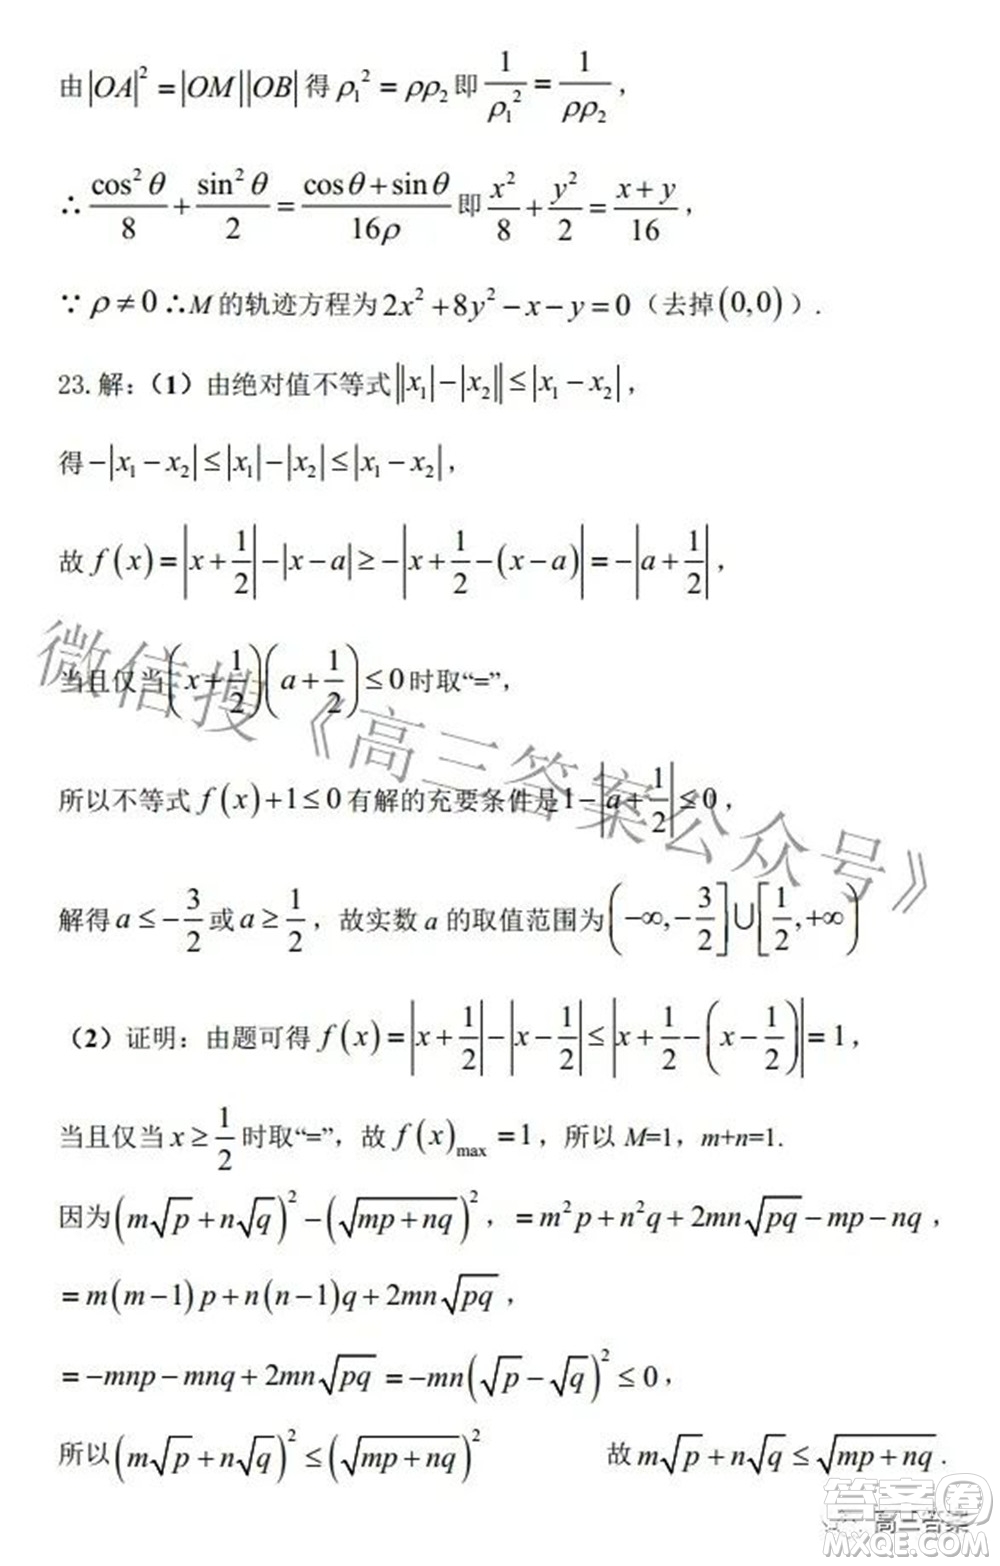 由|OA|²=|OM||OB|得ρ₁²=ρρ₂即1/ρ₁²=1/(ρρ₂)，
∴cos²θ/8+sin²θ/2=(cosθ+sinθ)/(16ρ)即x²/8+y²/2=(x+y)/16，
∵ρ≠0∴M的轨迹方程为2x²+8y²-x-y=0（去掉(0,0)）.
23.解：（1）由绝对值不等式||x₁|-|x₂||≤|x₁-x₂|，
得-|x₁-x₂|≤|x₁|-|x₂|≤|x₁-x₂|，
故f(x)=|x+1/2|-|x-a|≥-|x+1/2-(x-a)|=-|a+1/2|，
当且仅当(x+1/2)(a+1/2)≤0时取“=”，
所以不等式f(x)+1≤0有解的充要条件是1-|a+1/2|≤0，
解得a≤-3/2或a≥1/2，故实数a的取值范围为(-∞,-3/2]∪[1/2,+∞)
（2）证明：由题可得f(x)=|x+1/2|-|x-1/2|≤|x+1/2-(x-1/2)|=1，
当且仅当x≥1/2时取“=”，故f(x)max=1，所以M=1，m+n=1.
因为(m√p+n√q)²-(√(mp+nq))²，=m²p+n²q+2mn√(pq)-mp-nq，
=m(m-1)p+n(n-1)q+2mn√(pq)，
=-mnp-mnq+2mn√(pq)=-mn(√p-√q)²≤0，
所以(m√p+n√q)²≤(√(mp+nq))² 故m√p+n√q≤√(mp+nq).
微信搜《高三答案公众号》
答案卷
高三答案
MXQE.COM